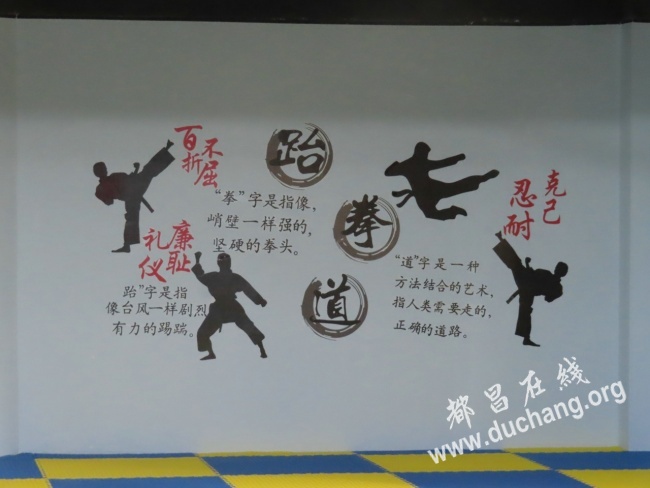 跆
拳
道
百折
不屈
礼仪
廉耻
忍耐
克己
“拳”字是指像,
峭壁一样强的,
坚硬的拳头。
跆”字是指
像台风一样剧烈
有力的踢踹。
“道”字是一种
方法结合的艺术,
指人类需要走的,
正确的道路。
都昌在线
www.duchang.org